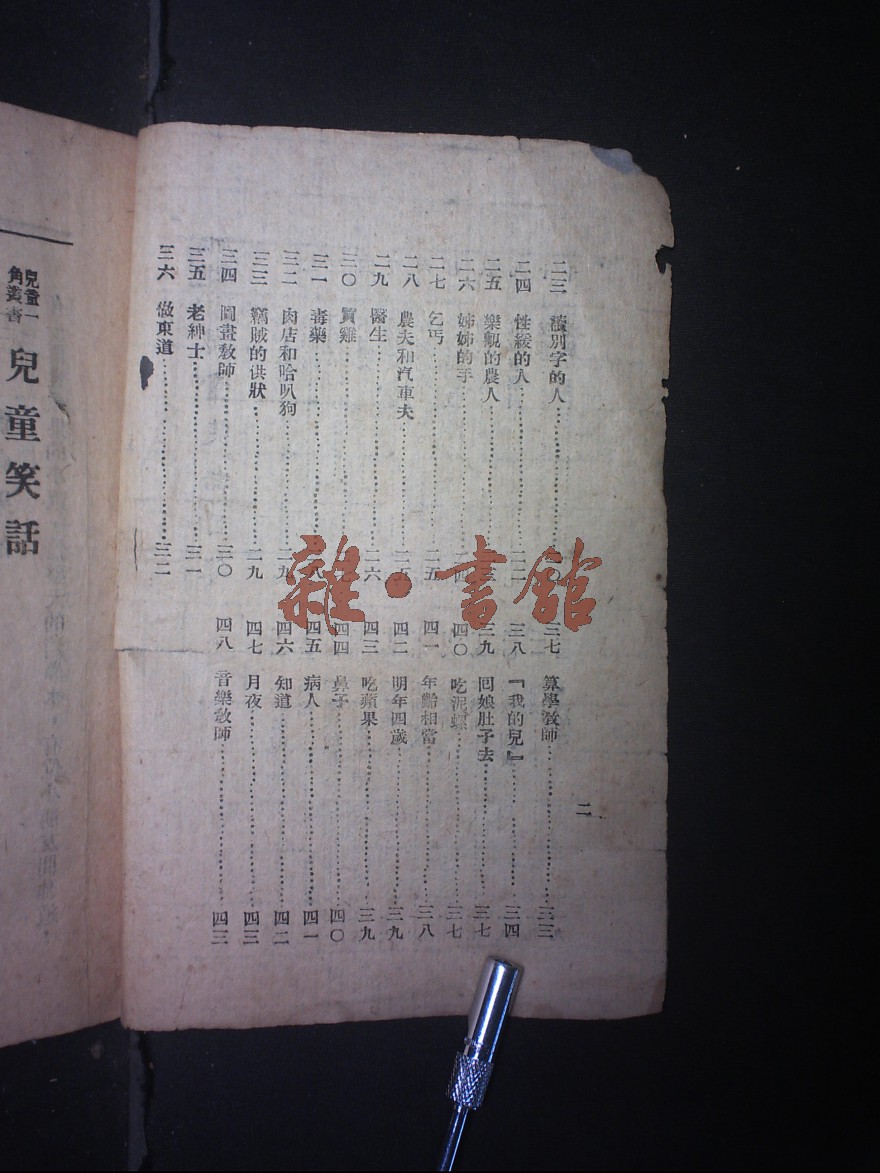 二三 讀別字的人
二四 性緩的人 二二
二五 樂觀的農人
二六 姊姊的手 二四
二七 乞丐 二五
二八 農夫和汽車夫 二五
二九 醫生 二六
三〇 買雞
三一 毒藥
三二 肉店和哈叭狗 二九
三三 竊賊的供狀 二九
三四 圖畫教師 三〇
三五 老紳士 三一
三六 做東道 三二
三七 算學教師 三三
三八 『我的兒』 三四
三九 回娘肚子去 三七
四〇 吃泥螺 三七
四一 年齡相當 三八
四二 明年四歲 三九
四三 吃蘋果 三九
四四 鼻子 四〇
四五 病人 四一
四六 知道 四二
四七 月夜 四三
四八 音樂教師 四三
二
兒童一角叢書
兒童笑話
雜·書館